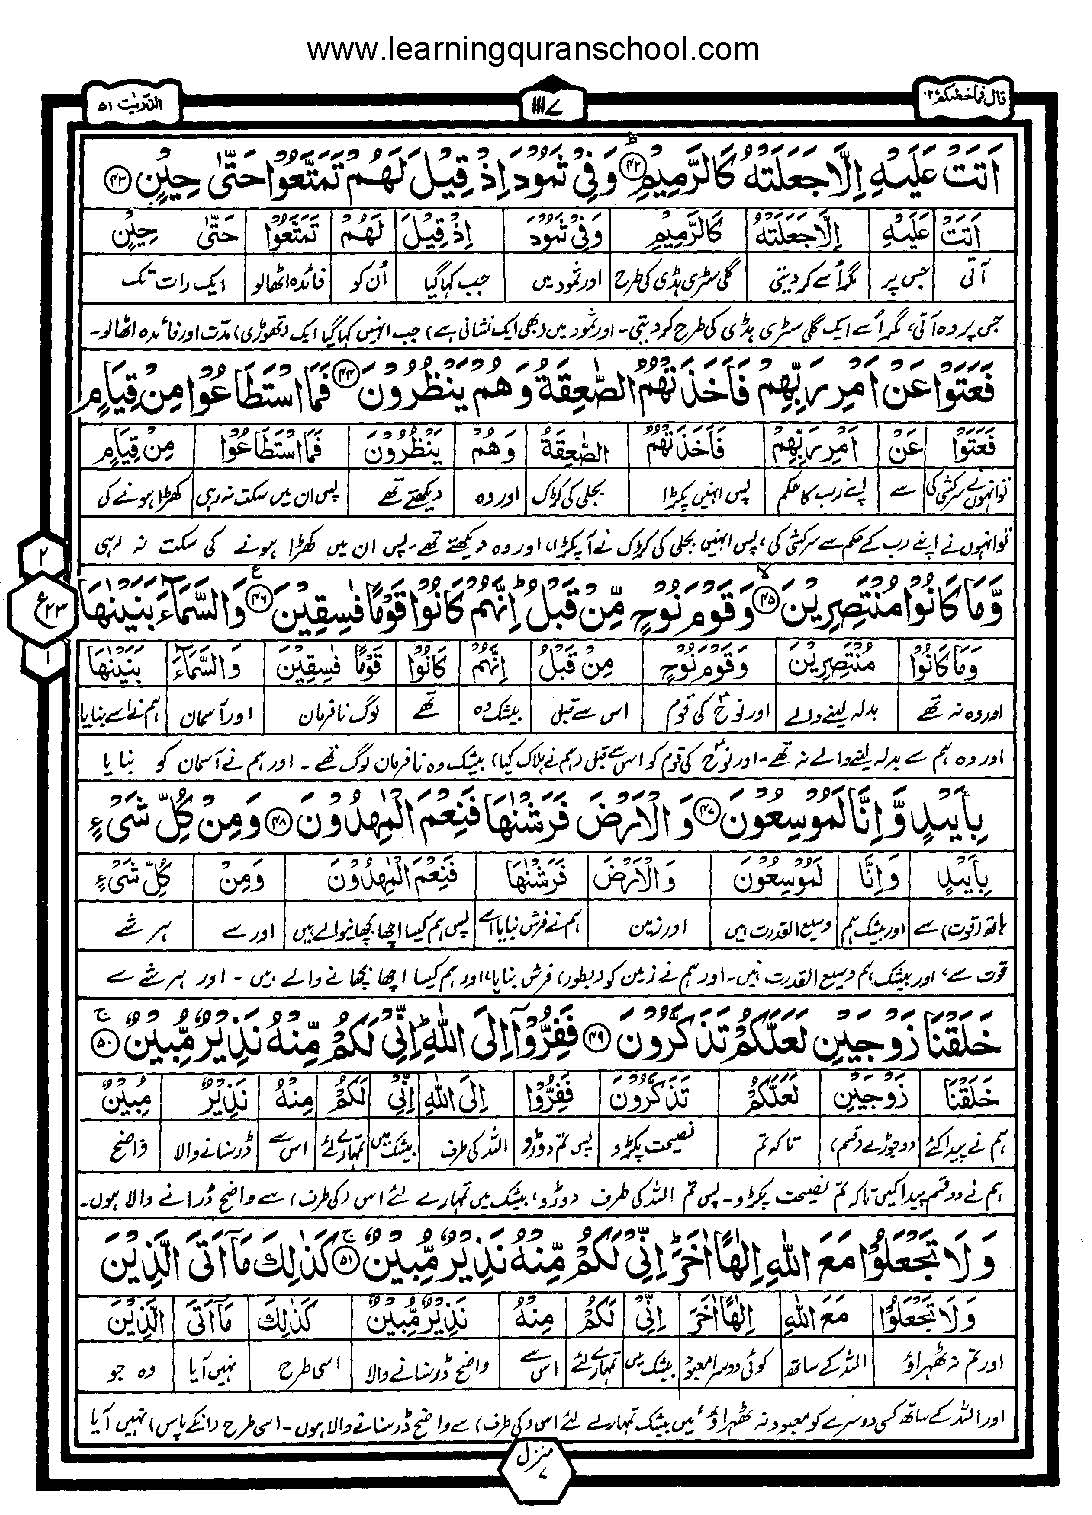 www.learningquranschool.com
قال فما خطبكم ٢٧ ١١١٧ الذّٰریٰت ٥١
اَتَتْ عَلَیْهِ اِلَّا جَعَلَتْهُ كَالرَّمِیْمِ ﴿٤٢﴾ وَ فِیْ ثَمُوْدَ اِذْ قِیْلَ لَهُمْ تَمَتَّعُوْا حَتّٰی حِیْنٍ ﴿٤٣﴾
اَتَتْ عَلَیْهِ اِلَّا جَعَلَتْهُ كَالرَّمِیْمِ وَفِیْ ثَمُوْدَ اِذْ قِیْلَ لَهُمْ تَمَتَّعُوْا حَتّٰی حِیْنٍ
آتی جس پر مگر اُسے کر دیتی گلی سڑی ہڈی کی طرح اور ثمود میں جب کہا گیا اُن کو فائدہ اٹھالو ایک رات تک
جس پر وہ آتی، مگر اُسے ایک گلی سڑی ہڈی کی طرح کر دیتی۔ اور ثمود میں (بھی ایک نشانی ہے) جب انہیں کہا گیا ایک (تھوڑی) مدّت اور فائدہ اٹھالو۔
فَعَتَوْا عَنْ اَمْرِ رَبِّهِمْ فَاَخَذَتْهُمُ الصّٰعِقَةُ وَ هُمْ یَنْظُرُوْنَ ﴿٤٤﴾ فَمَا اسْتَطَاعُوْا مِنْ قِیَامٍ
فَعَتَوْا عَنْ اَمْرِ رَبِّهِمْ فَاَخَذَتْهُمُ الصّٰعِقَةُ وَهُمْ یَنْظُرُوْنَ فَمَا اسْتَطَاعُوْا مِنْ قِیَامٍ
تو انہوں نے سرکشی کی سے اپنے رب کا حکم پس انہیں پکڑا بجلی کی کڑک اور وہ دیکھتے تھے پس ان میں سکت نہ رہی کھڑا ہونے کی
تو انہوں نے اپنے رب کے حکم سے سرکشی کی، پس انہیں بجلی کی کڑک نے آ پکڑا، اور وہ دیکھتے تھے۔ پس ان میں کھڑا ہونے کی سکت نہ رہی
٢
ع ٢٣
١
وَّ مَا كَانُوْا مُنْتَصِرِیْنَ ﴿٤٥﴾ وَ قَوْمَ نُوْحٍ مِّنْ قَبْلُ اِنَّهُمْ كَانُوْا قَوْمًا فٰسِقِیْنَ ﴿٤٦﴾ وَ السَّمَآءَ بَنَیْنٰهَا
وَمَا كَانُوْا مُنْتَصِرِیْنَ وَقَوْمَ نُوْحٍ مِنْ قَبْلُ اِنَّهُمْ كَانُوْا قَوْمًا فٰسِقِیْنَ وَالسَّمَآءَ بَنَیْنٰهَا
اور وہ نہ تھے بدلہ لینے والے اور نوحؑ کی قوم اس سے قبل بیشک وہ تھے لوگ نافرمان اور آسمان ہم نے اسے بنایا
اور وہ ہم سے بدلہ لینے والے نہ تھے۔ اور نوحؑ کی قوم کو اس سے قبل (ہم نے ہلاک کیا) بیشک وہ نافرمان لوگ تھے۔ اور ہم نے آسمان کو بنایا
بِاَیْىدٍ وَّ اِنَّا لَمُوْسِعُوْنَ ﴿٤٧﴾ وَ الْاَرْضَ فَرَشْنٰهَا فَنِعْمَ الْمٰهِدُوْنَ ﴿٤٨﴾ وَ مِنْ كُلِّ شَیْءٍ
بِاَیْىدٍ وَاِنَّا لَمُوْسِعُوْنَ وَالْاَرْضَ فَرَشْنٰهَا فَنِعْمَ الْمٰهِدُوْنَ وَمِنْ كُلِّ شَیْءٍ
ہاتھ (قوت) سے اور بیشک ہم وسیع القدرت ہیں اور زمین ہم نے فرش بنایا اسے پس ہم کیسا اچھا بچھانیوالے ہیں اور سے ہر شے
قوت سے، اور بیشک ہم وسیع القدرت ہیں۔ اور ہم نے زمین کو (بطور) فرش بنایا، اور ہم کیسا اچھا بچھانے والے ہیں۔ اور ہر شے سے
خَلَقْنَا زَوْجَیْنِ لَعَلَّكُمْ تَذَكَّرُوْنَ ﴿٤٩﴾ فَفِرُّوْۤا اِلَی اللّٰهِ اِنِّیْ لَكُمْ مِّنْهُ نَذِیْرٌ مُّبِیْنٌ ﴿٥٠﴾
خَلَقْنَا زَوْجَیْنِ لَعَلَّكُمْ تَذَكَّرُوْنَ فَفِرُّوْا اِلَی اللّٰهِ اِنِّیْ لَكُمْ مِنْهُ نَذِیْرٌ مُبِیْنٌ
ہم نے پیدا کئے دو جوڑے (قسم) تاکہ تم نصیحت پکڑو پس تم دوڑو اللہ کی طرف بیشک میں تمہارے لئے اس سے ڈر سنانے والا واضح
ہم نے دو قسم پیدا کیں تاکہ تم نصیحت پکڑو۔ پس تم اللہ کی طرف دوڑو، بیشک میں تمہارے لئے اس (کی طرف) سے واضح ڈرانے والا ہوں۔
وَ لَا تَجْعَلُوْا مَعَ اللّٰهِ اِلٰهًا اٰخَرَ اِنِّیْ لَكُمْ مِّنْهُ نَذِیْرٌ مُّبِیْنٌ ﴿٥١﴾ كَذٰلِكَ مَاۤ اَتَی الَّذِیْنَ
وَلَا تَجْعَلُوْا مَعَ اللّٰهِ اِلٰهًا اٰخَرَ اِنِّیْ لَكُمْ مِنْهُ نَذِیْرٌ مُّبِیْنٌ كَذٰلِكَ مَآ اَتَی الَّذِیْنَ
اور تم نہ ٹھہراؤ اللہ کے ساتھ کوئی دوسرا معبود بیشک میں تمہارے لئے اس سے واضح ڈر سنانے والا اسی طرح نہیں آیا وہ جو
اور اللہ کے ساتھ کسی دوسرے کو معبود نہ ٹھہراؤ، میں بیشک تمہارے لئے اس (کی طرف) سے واضح ڈر سنانے والا ہوں۔ اسی طرح (انکے پاس) نہیں آیا
منزل ٧